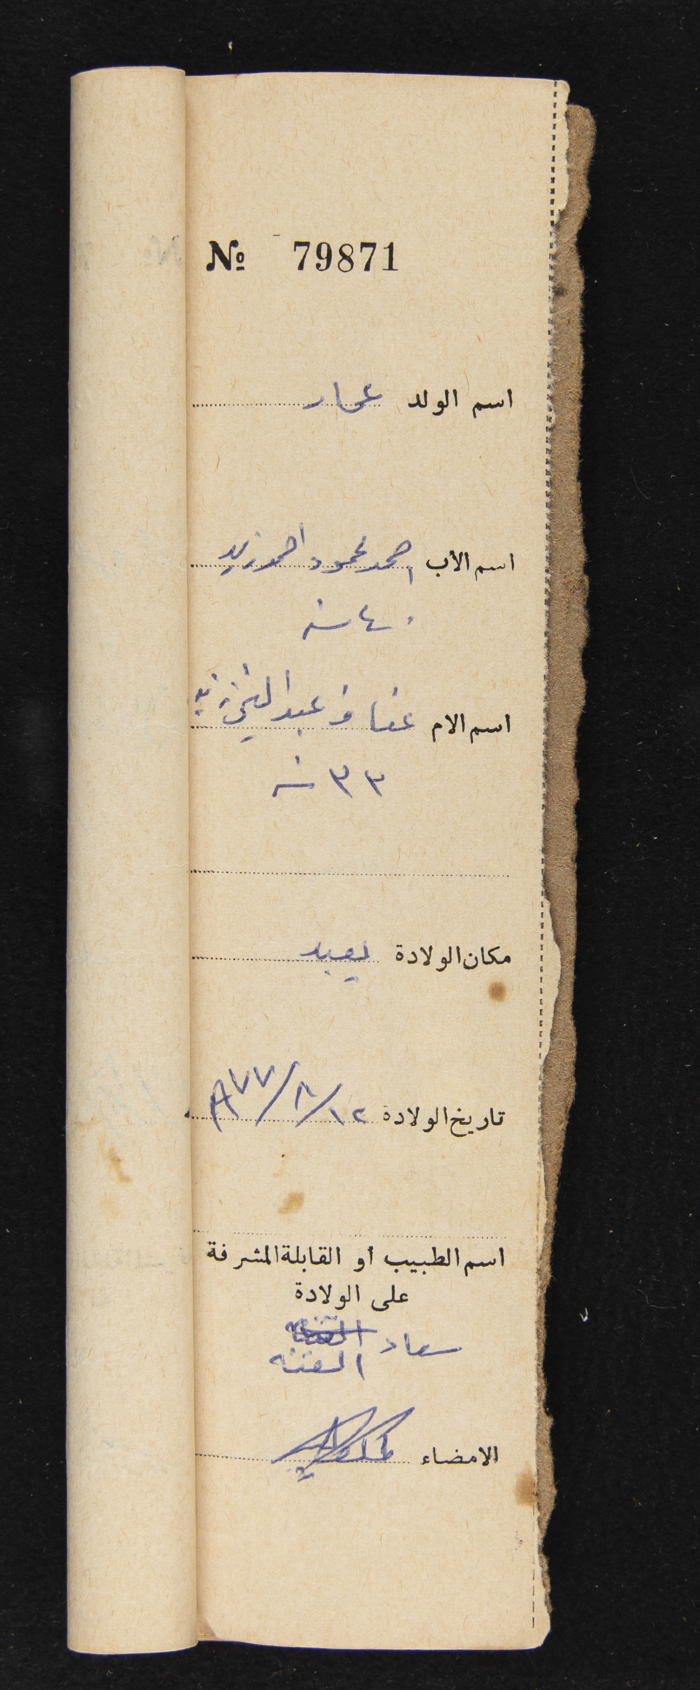 № 79871
اسم الولد عمار
اسم الأب احمد محمود احمد زيد
٤٠ سنه
اسم الام عفاف عبد الغني زيد
٣٣ سنه
مكان الولادة يعبد
تاريخ الولادة ١٢/٨/٩٧٧
اسم الطبيب أو القابلة المشرفة
على الولادة
سعاد
الامضاء